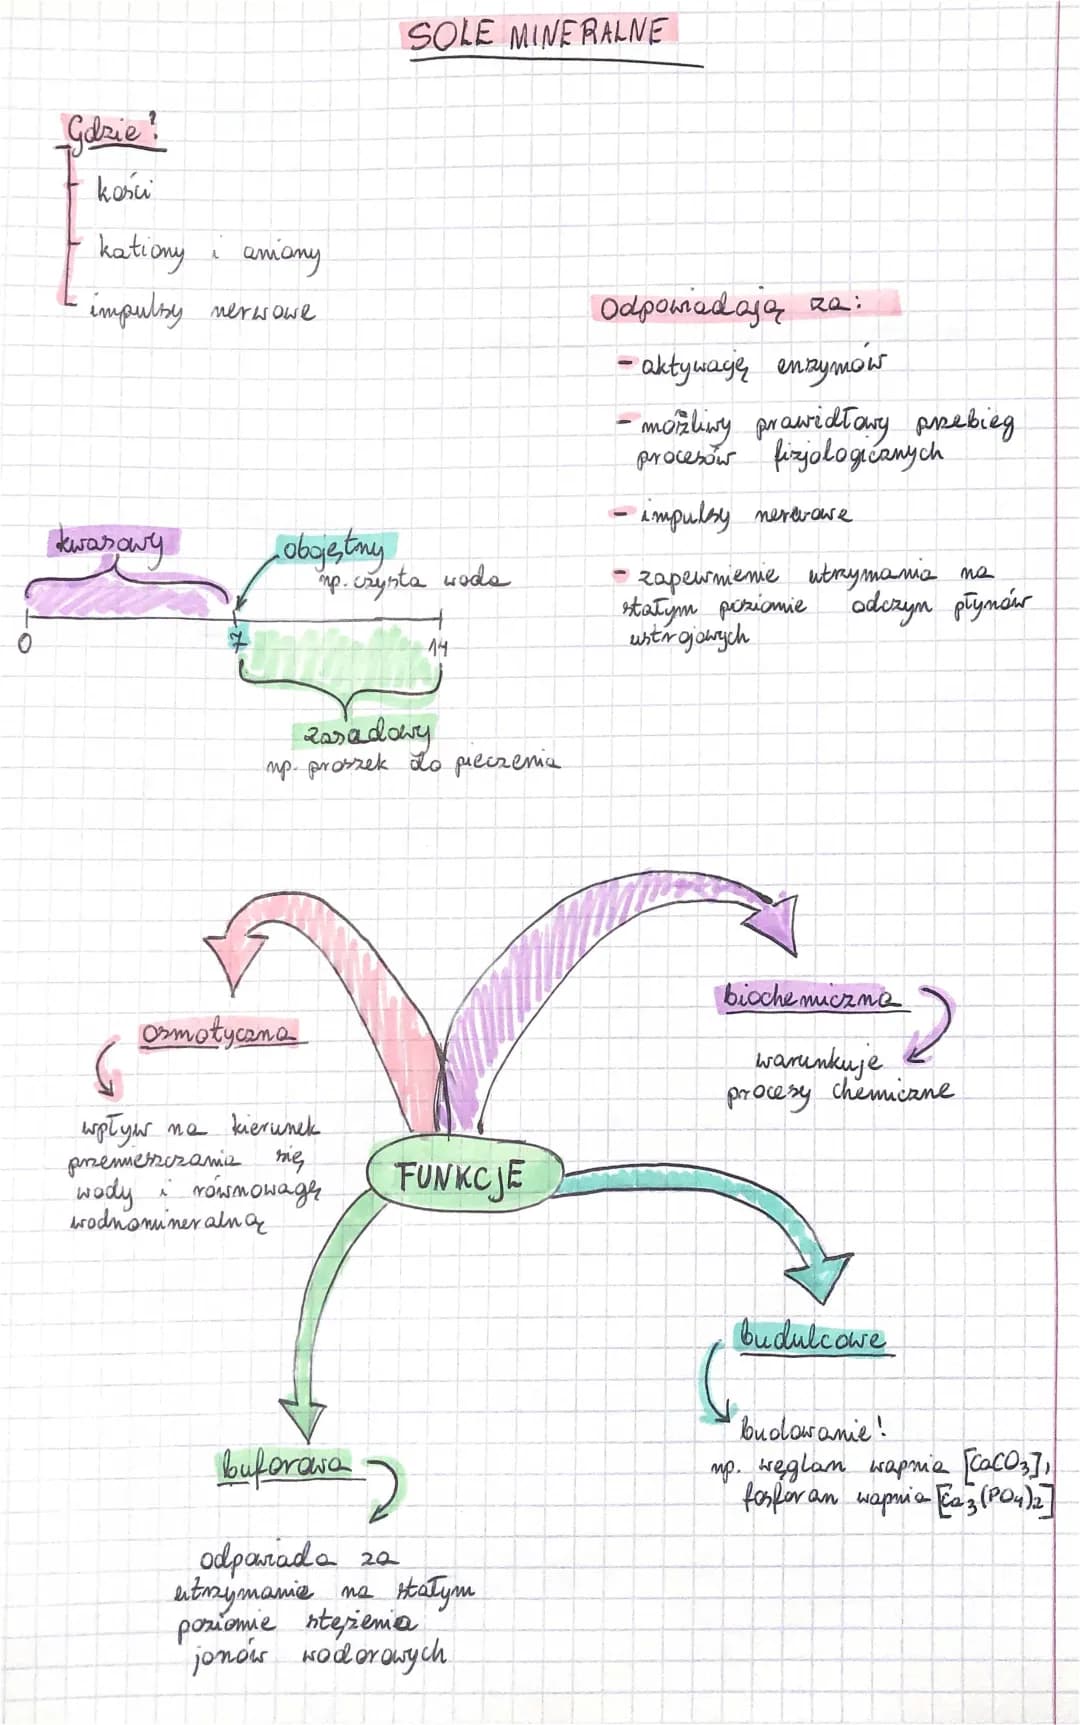 SOLE MINERALNE
Gdzie?
kości
kationy i aniony
impulsy nerwowe
Odpowiadają za:
- aktywację enzymów
- możliwy prawidłowy przebieg
procesów fizjologicznych
- impulsy nerwowe
- zapewnienie utrzymania na
stałym poziomie odczyn płynów
ustrojowych
kwasowy
obojętny
np. czysta woda
0
7
14
zasadowy
np. proszek do pieczenia
osmotyczna
wpływ na kierunek
przemieszczania się
wody i równowagę
wodnomineralną
biochemiczna
warunkuje
procesy chemiczne
FUNKCJE
budulcowe
budowanie!
np. węglan wapnia [CaCO3],
fosforan wapnia [Ca3(PO4)2]
buforowa
odpowiada za
utrzymanie na stałym
poziomie stężenia
jonów wodorowych